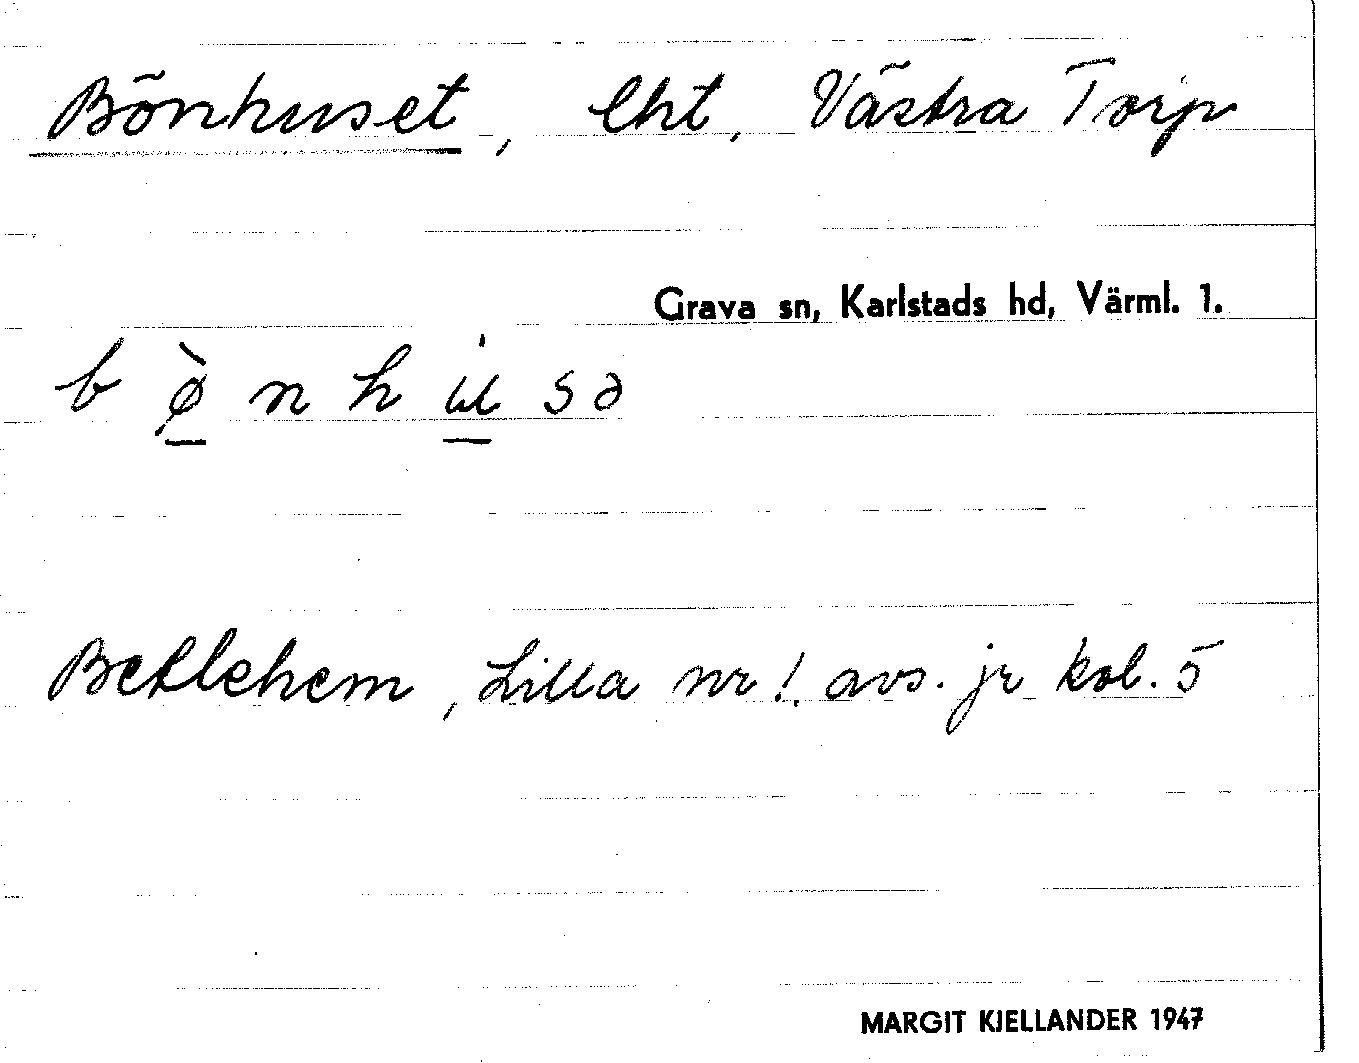 Bönhuset, lht, Västra Torp
Grava sn, Karlstads hd, Värml. 1.
b ø̀ n h ú s ə
Betlehem, Lilla nr 1. avs. jr kol. 5
MARGIT KJELLANDER 1947